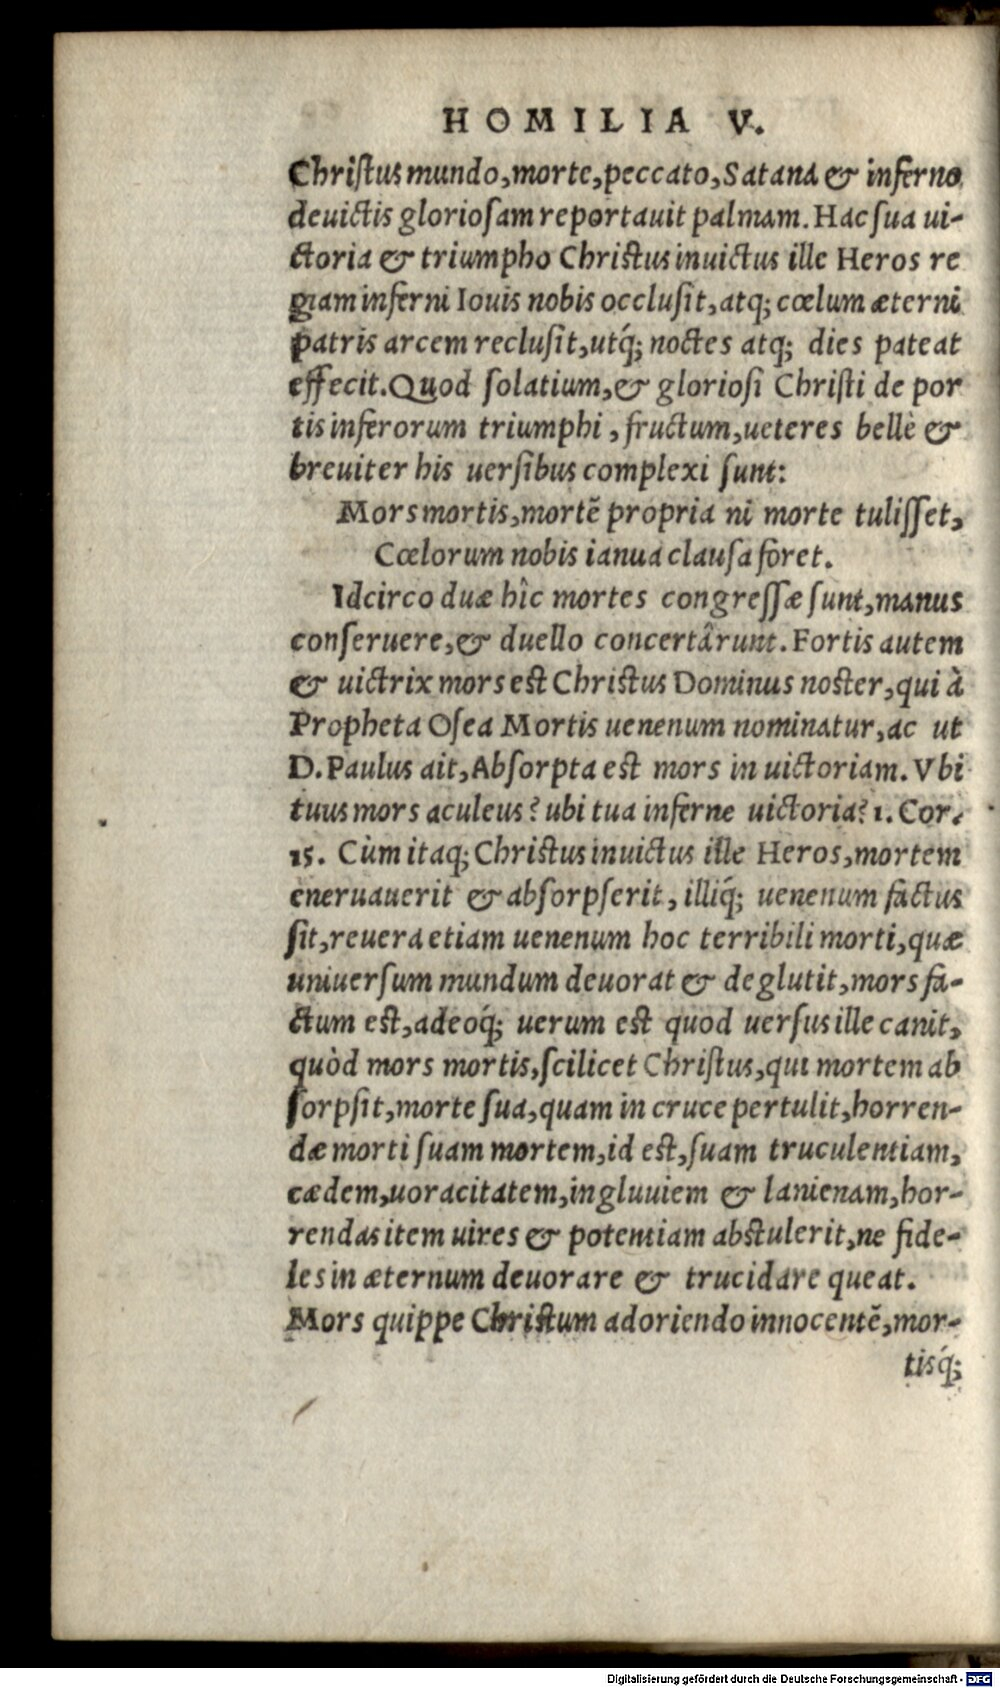 HOMILIA V.
Christus mundo, morte, peccato, Satana & inferno
deuictis gloriosam reportauit palmam. Hac sua ui-
ctoria & triumpho Christus inuictus ille Heros re
giam inferni Iouis nobis occlusit, atq; cœlum æterni
patris arcem reclusit, utq́; noctes atq; dies pateat
effecit. Quod solatium, & gloriosi Christi de por
tis inferorum triumphi, fructum, ueteres bellè &
breuiter his uersibus complexi sunt:
Mors mortis, mortẽ propria ni morte tulisset,
Cœlorum nobis ianua clausa foret.
Idcirco duæ hîc mortes congressæ sunt, manus
conseruere, & duello concertârunt. Fortis autem
& uictrix mors est Christus Dominus noster, qui à
Propheta Osea Mortis uenenum nominatur, ac ut
D. Paulus ait, Absorpta est mors in uictoriam. Vbi
tuus mors aculeus? ubi tua inferne uictoria? 1. Cor.
15. Cùm itaq; Christus inuictus ille Heros, mortem
eneruauerit & absorpserit, illiq́; uenenum factus
sit, reuera etiam uenenum hoc terribili morti, quæ
uniuersum mundum deuorat & deglutit, mors fa-
ctum est, adeoq́; uerum est quod uersus ille canit,
quòd mors mortis, scilicet Christus, qui mortem ab
sorpsit, morte sua, quam in cruce pertulit, horren-
dæ morti suam mortem, id est, suam truculentiam,
cædem, uoracitatem, ingluuiem & lanienam, hor-
rendas item uires & potentiam abstulerit, ne fide-
les in æternum deuorare & trucidare queat.
Mors quippe Christum adoriendo innocentẽ, mor-
tisq́;
Digitalisierung gefördert durch die Deutsche Forschungsgemeinschaft - DFG